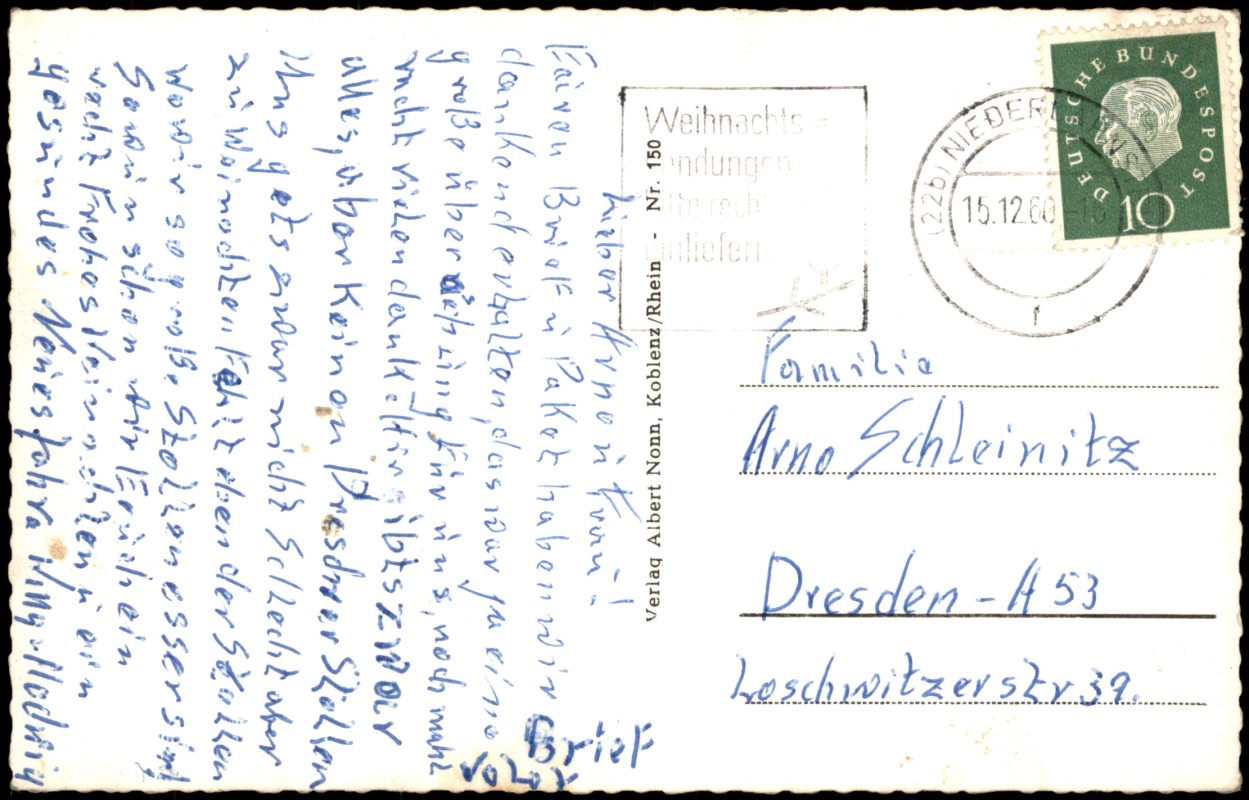 Lieber Arno u Frau!
Euren Brief u Paket haben wir
dankend erhalten, das war ja eine
große überraschung für uns, noch mahl
vielen dank hir gibts zwar
alles, aber keinen Dresdner Stollen
Uns gets zwar nicht Schlecht aber
zu Weinachten Fehlt eben der Stollen
wo wir so große Stollenesser sind
Sowin schon wir Euch ein
recht Frohes Weinachten u ein
gesundes Neues Jahr
Brief
Weihnachts-
sendungen
bitte recht
einliefern
Verlag Albert Nonn, Koblenz/Rhein - Nr. 150
(22b) NIEDER
15.12.60
f
DEUTSCHE BUNDESPOST
10
Familie
Arno Schleinitz
Dresden - A 53
Loschwitzerstr 39.